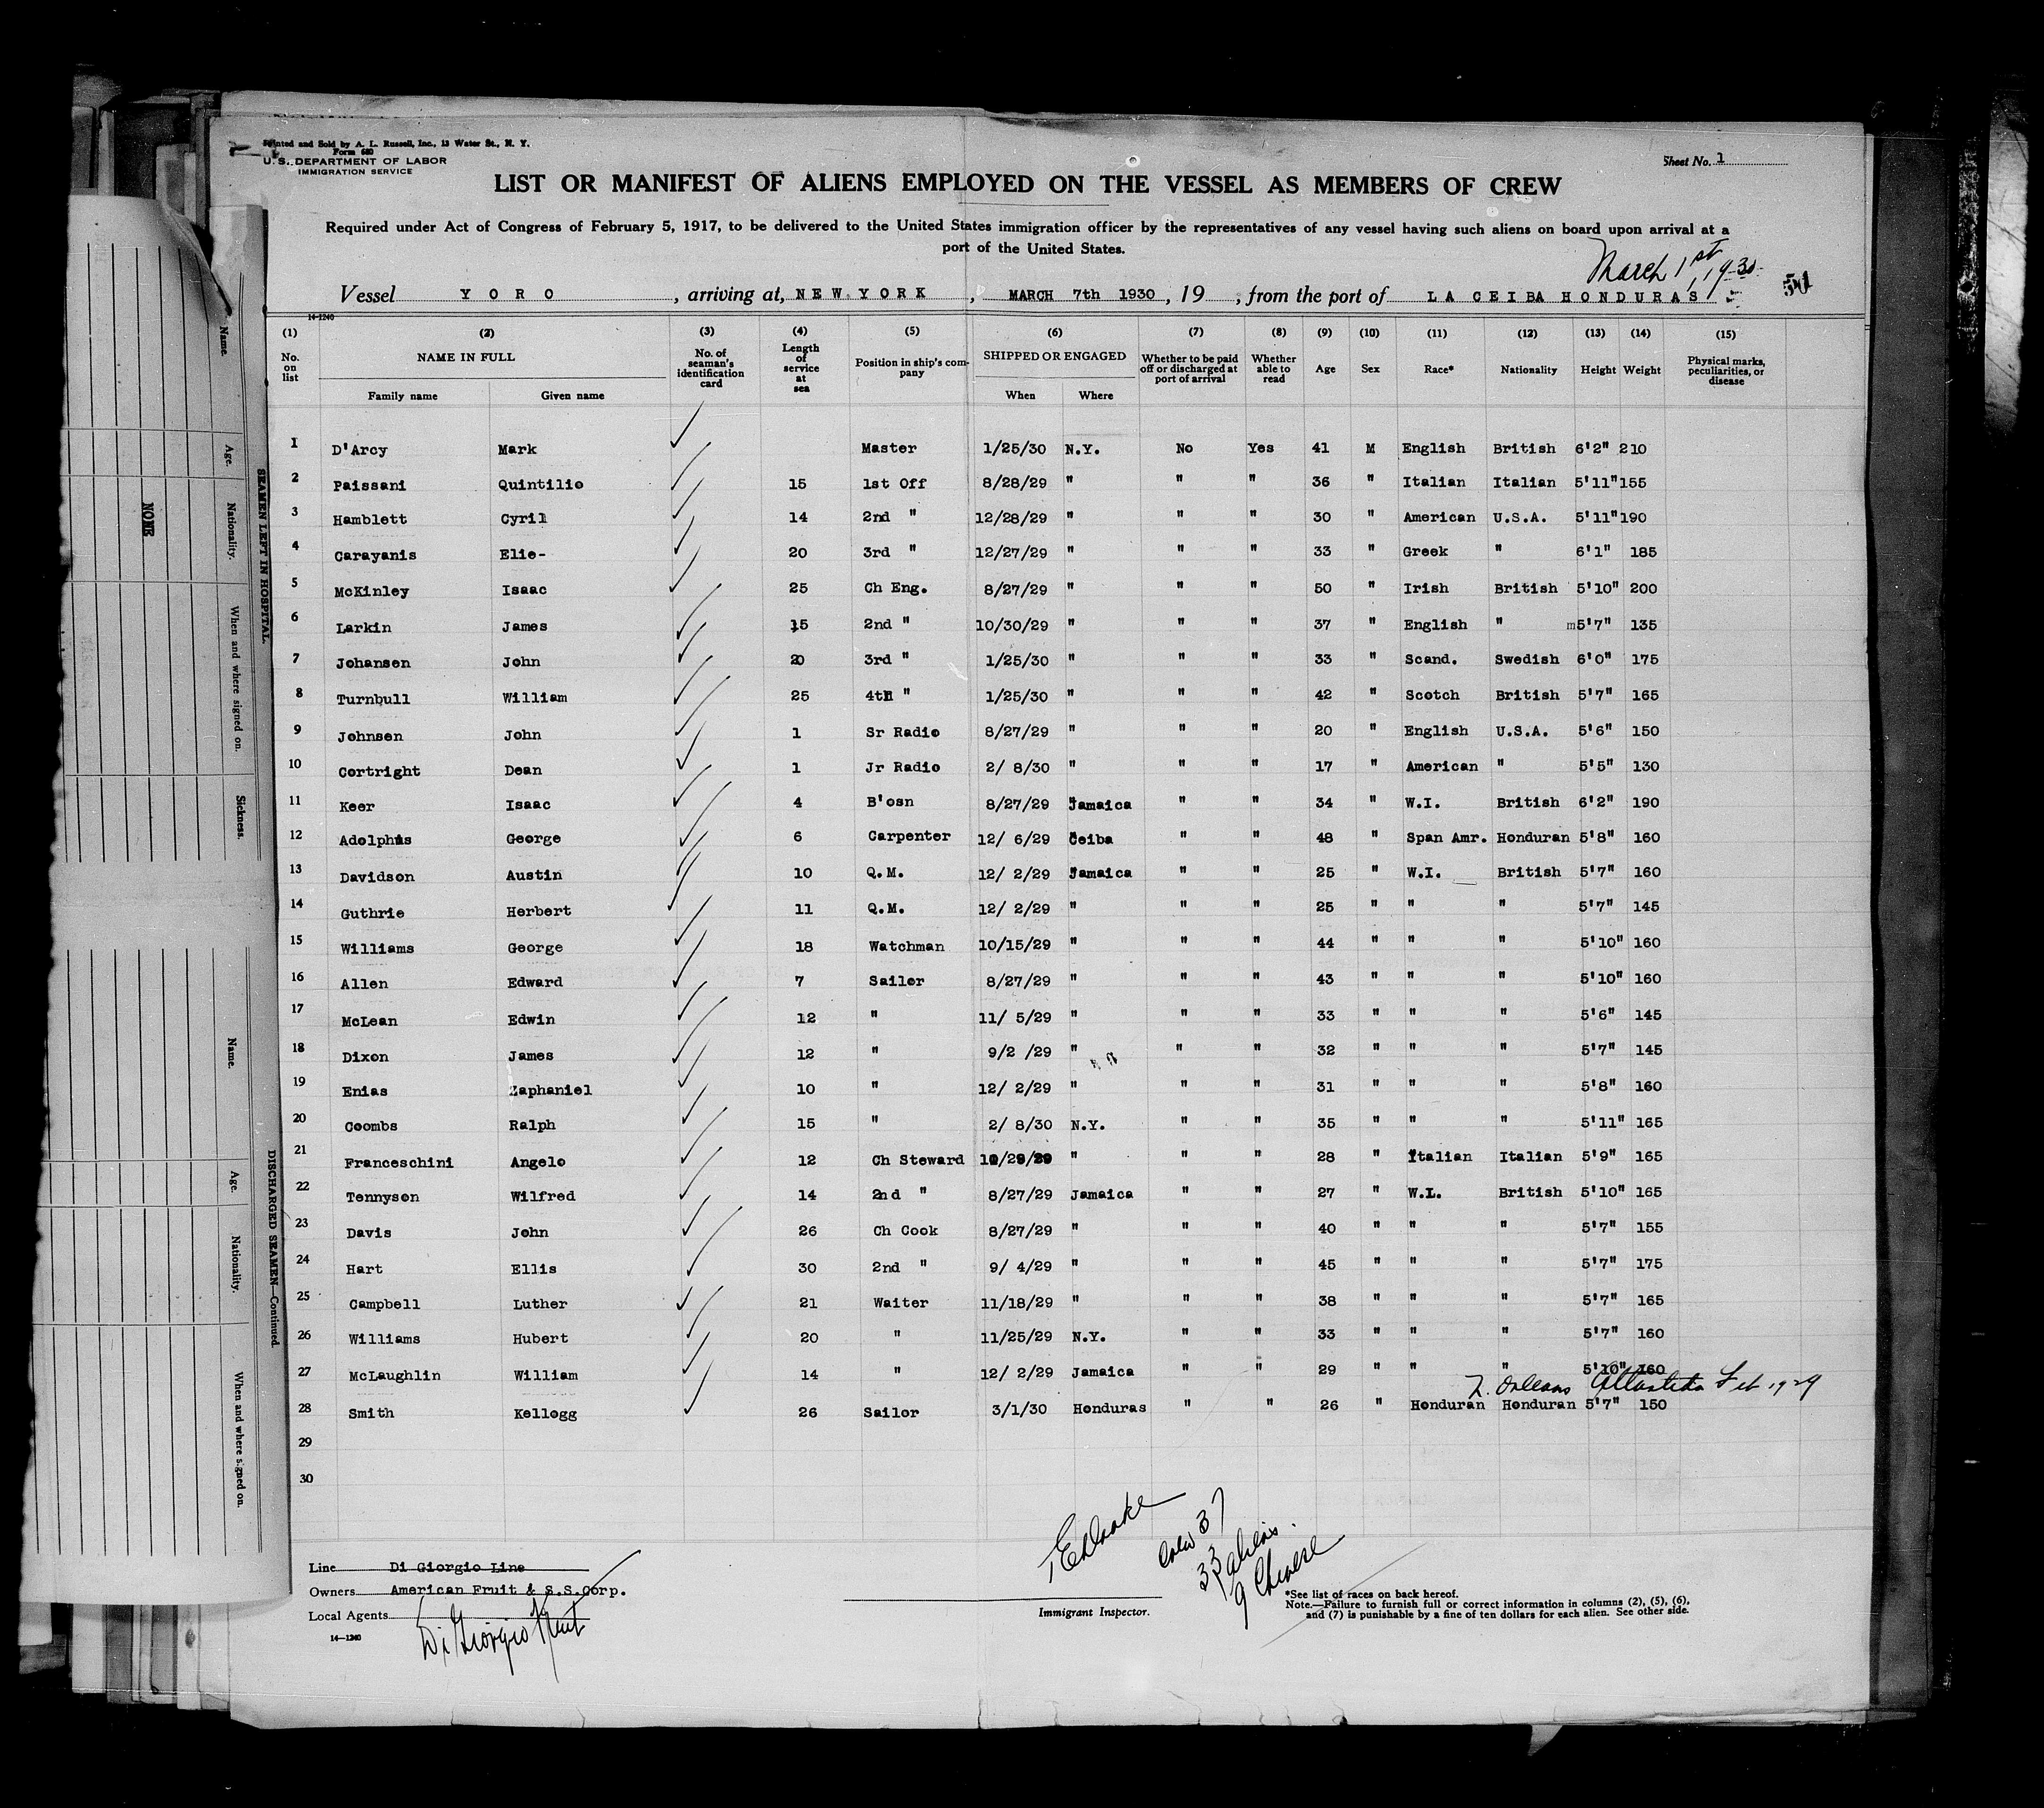 Printed and Sold by A. L. Russell, Inc., 13 Water St., N. Y.
Form 680
U. S. DEPARTMENT OF LABOR
IMMIGRATION SERVICE
Sheet No. 1
LIST OR MANIFEST OF ALIENS EMPLOYED ON THE VESSEL AS MEMBERS OF CREW
Required under Act of Congress of February 5, 1917, to be delivered to the United States immigration officer by the representatives of any vessel having such aliens on board upon arrival at a
port of the United States.
March 1st, 1930
Vessel YORO, arriving at, NEW YORK, MARCH 7th 1930, 19 , from the port of LA CEIBA HONDURAS
14-1240
(1) (2) (3) (4) (5) (6) (7) (8) (9) (10) (11) (12) (13) (14) (15)
No. on list NAME IN FULL No. of seaman's identification card Length of service at sea Position in ship's company SHIPPED OR ENGAGED Whether to be paid off or discharged at port of arrival Whether able to read Age Sex Race* Nationality Height Weight Physical marks, peculiarities, or disease
Family name Given name When Where
1 D'Arcy Mark Master 1/25/30 N.Y. No Yes 41 M English British 6'2" 210
2 Paissani Quintilio 15 1st Off 8/28/29 " " " 36 " Italian Italian 5'11" 155
3 Hamblett Cyril 14 2nd " 12/28/29 " " " 30 " American U.S.A. 5'11" 190
4 Carayanis Elie- 20 3rd " 12/27/29 " " " 33 " Greek " 6'1" 185
5 McKinley Isaac 25 Ch Eng. 8/27/29 " " " 50 " Irish British 5'10" 200
6 Larkin James 15 2nd " 10/30/29 " " " 37 " English " m5'7" 135
7 Johansen John 20 3rd " 1/25/30 " " " 33 " Scand. Swedish 6'0" 175
8 Turnbull William 25 4th " 1/25/30 " " " 42 " Scotch British 5'7" 165
9 Johnsen John 1 Sr Radio 8/27/29 " " " 20 " English U.S.A. 5'6" 150
10 Cortright Dean 1 Jr Radio 2/ 8/30 " " " 17 " American " 5'5" 130
11 Keer Isaac 4 B'osn 8/27/29 Jamaica " " 34 " W.I. British 6'2" 190
12 Adolphus George 6 Carpenter 12/ 6/29 Ceiba " " 48 " Span Amr. Honduran 5'8" 160
13 Davidson Austin 10 Q.M. 12/ 2/29 Jamaica " " 25 " W.I. British 5'7" 160
14 Guthrie Herbert 11 Q.M. 12/ 2/29 " " " 25 " " " 5'7" 145
15 Williams George 18 Watchman 10/15/29 " " " 44 " " " 5'10" 160
16 Allen Edward 7 Sailor 8/27/29 " " " 43 " " " 5'10" 160
17 McLean Edwin 12 " 11/ 5/29 " " " 33 " " " 5'6" 145
18 Dixon James 12 " 9/2 /29 " " " 32 " " " 5'7" 145
19 Enias Zaphaniel 10 " 12/ 2/29 " " " 31 " " " 5'8" 160
20 Coombs Ralph 15 " 2/ 8/30 N.Y. " " 35 " " " 5'11" 165
21 Franceschini Angelo 12 Ch Steward " " " 28 " Italian Italian 5'9" 165
22 Tennyson Wilfred 14 2nd " 8/27/29 Jamaica " " 27 " W.I. British 5'10" 165
23 Davis John 26 Ch Cook 8/27/29 " " " 40 " " " 5'7" 155
24 Hart Ellis 30 2nd " 9/ 4/29 " " " 45 " " " 5'7" 175
25 Campbell Luther 21 Waiter 11/18/29 " " " 38 " " " 5'7" 165
26 Williams Hubert 20 " 11/25/29 N.Y. " " 33 " " " 5'7" 160
27 McLaughlin William 14 " 12/ 2/29 Jamaica " " 29 " " " 5'10" 160
N. Orleans Feb 1929
28 Smith Kellogg 26 Sailor 3/1/30 Honduras " " 26 " Honduran Honduran 5'7" 150
29
30
Crew 37
33 aliens
9 Chinese
Line Di Giorgio Line
Owners American Fruit & S.S.Corp.
Local Agents Di Giorgio Fruit
14-1240
Immigrant Inspector.
*See list of races on back hereof.
Note.—Failure to furnish full or correct information in columns (2), (5), (6),
and (7) is punishable by a fine of ten dollars for each alien. See other side.
SEAMEN LEFT IN HOSPITAL.
Name. Age. Nationality. When and where signed on. Sickness.
NONE
DISCHARGED SEAMEN—Continued.
Name. Age. Nationality. When and where signed on.